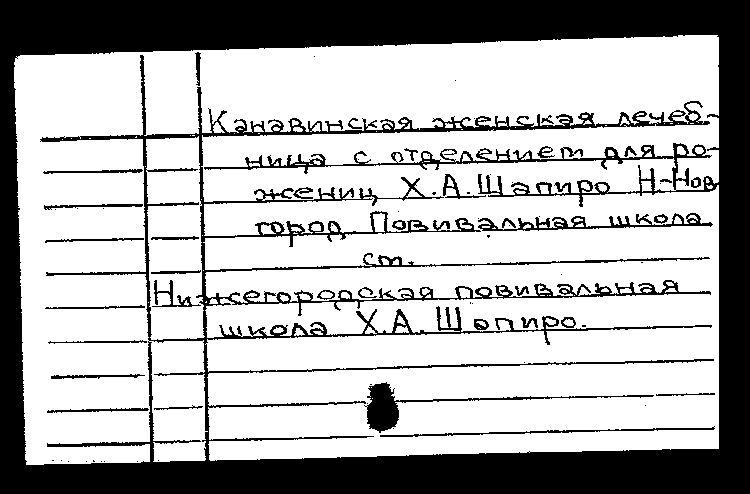 Канавинская женская лечеб-
ница с отделением для ро-
жениц Х.А.Шапиро Н-Нов
город Повивальная школа
см.
Нижегородская повивальная
школа Х.А.Шапиро.